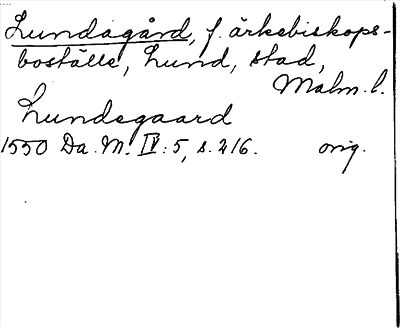 Lundagård, f. ärkebiskops-
boställe, Lund, stad,
Malm. l.
Lundegaard
1550 Da. M. IV: 5, s. 216. orig.